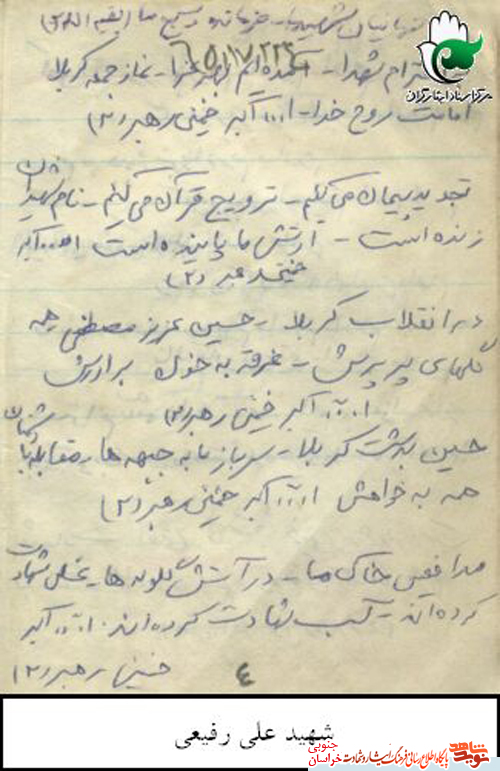 قربانیان شهیدند - فرمانده بسیج ما (بقیه الله ۲)
۶۵/۷/۲۲
احترام شهدا - آمده‌ایم بهر عزا - نماز جمعه کربلا
امامت روح خدا - ا... اکبر خمینی رهبر (۲)
تجدید پیمان می کنیم - ترویج قرآن می کنیم - نام شهیدان
زنده است - ارتش ما پاینده است ا... اکبر
خمینی رهبر (۲)
در انقلاب کربلا - حسین عزیز مصطفی همه
گلهای پرپرش - غرقه به خون برادرش
ا... اکبر خمینی رهبر (۲)
حسین به دشت کربلا - سرباز ما به جبهه ها - مقابله با دشمنان
همه به خواهش ا... اکبر خمینی رهبر (۲)
مدافعین خاک ما - در آتش گلوله ها - غسل شهادت
کرده اند - کسب شهادت کرده اند. ا... اکبر
خمینی رهبر (۲)
۴
مرکز اسناد ایثارگران
شهید علی رفیعی
نوید شاهد
پایگاه اطلاع رسانی فرهنگ ایثار و شهادت خراسان جنوبی